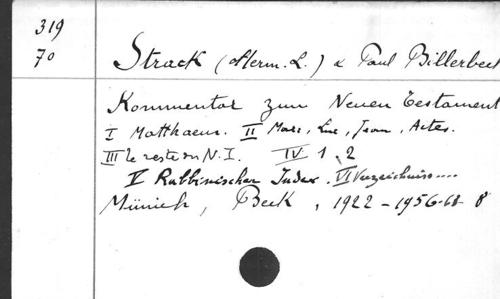 319
70
Strack (Herm. L.) & Paul Billerbeck
Kommentar zum Neuen Testament
I Matthaeus. II Marc, Luc, Jean, Actes.
III le reste du N.T. IV 1, 2
V Rabbinischer Index. VI Verzeichniss....
Münich, Beck, 1922-1956-61 8